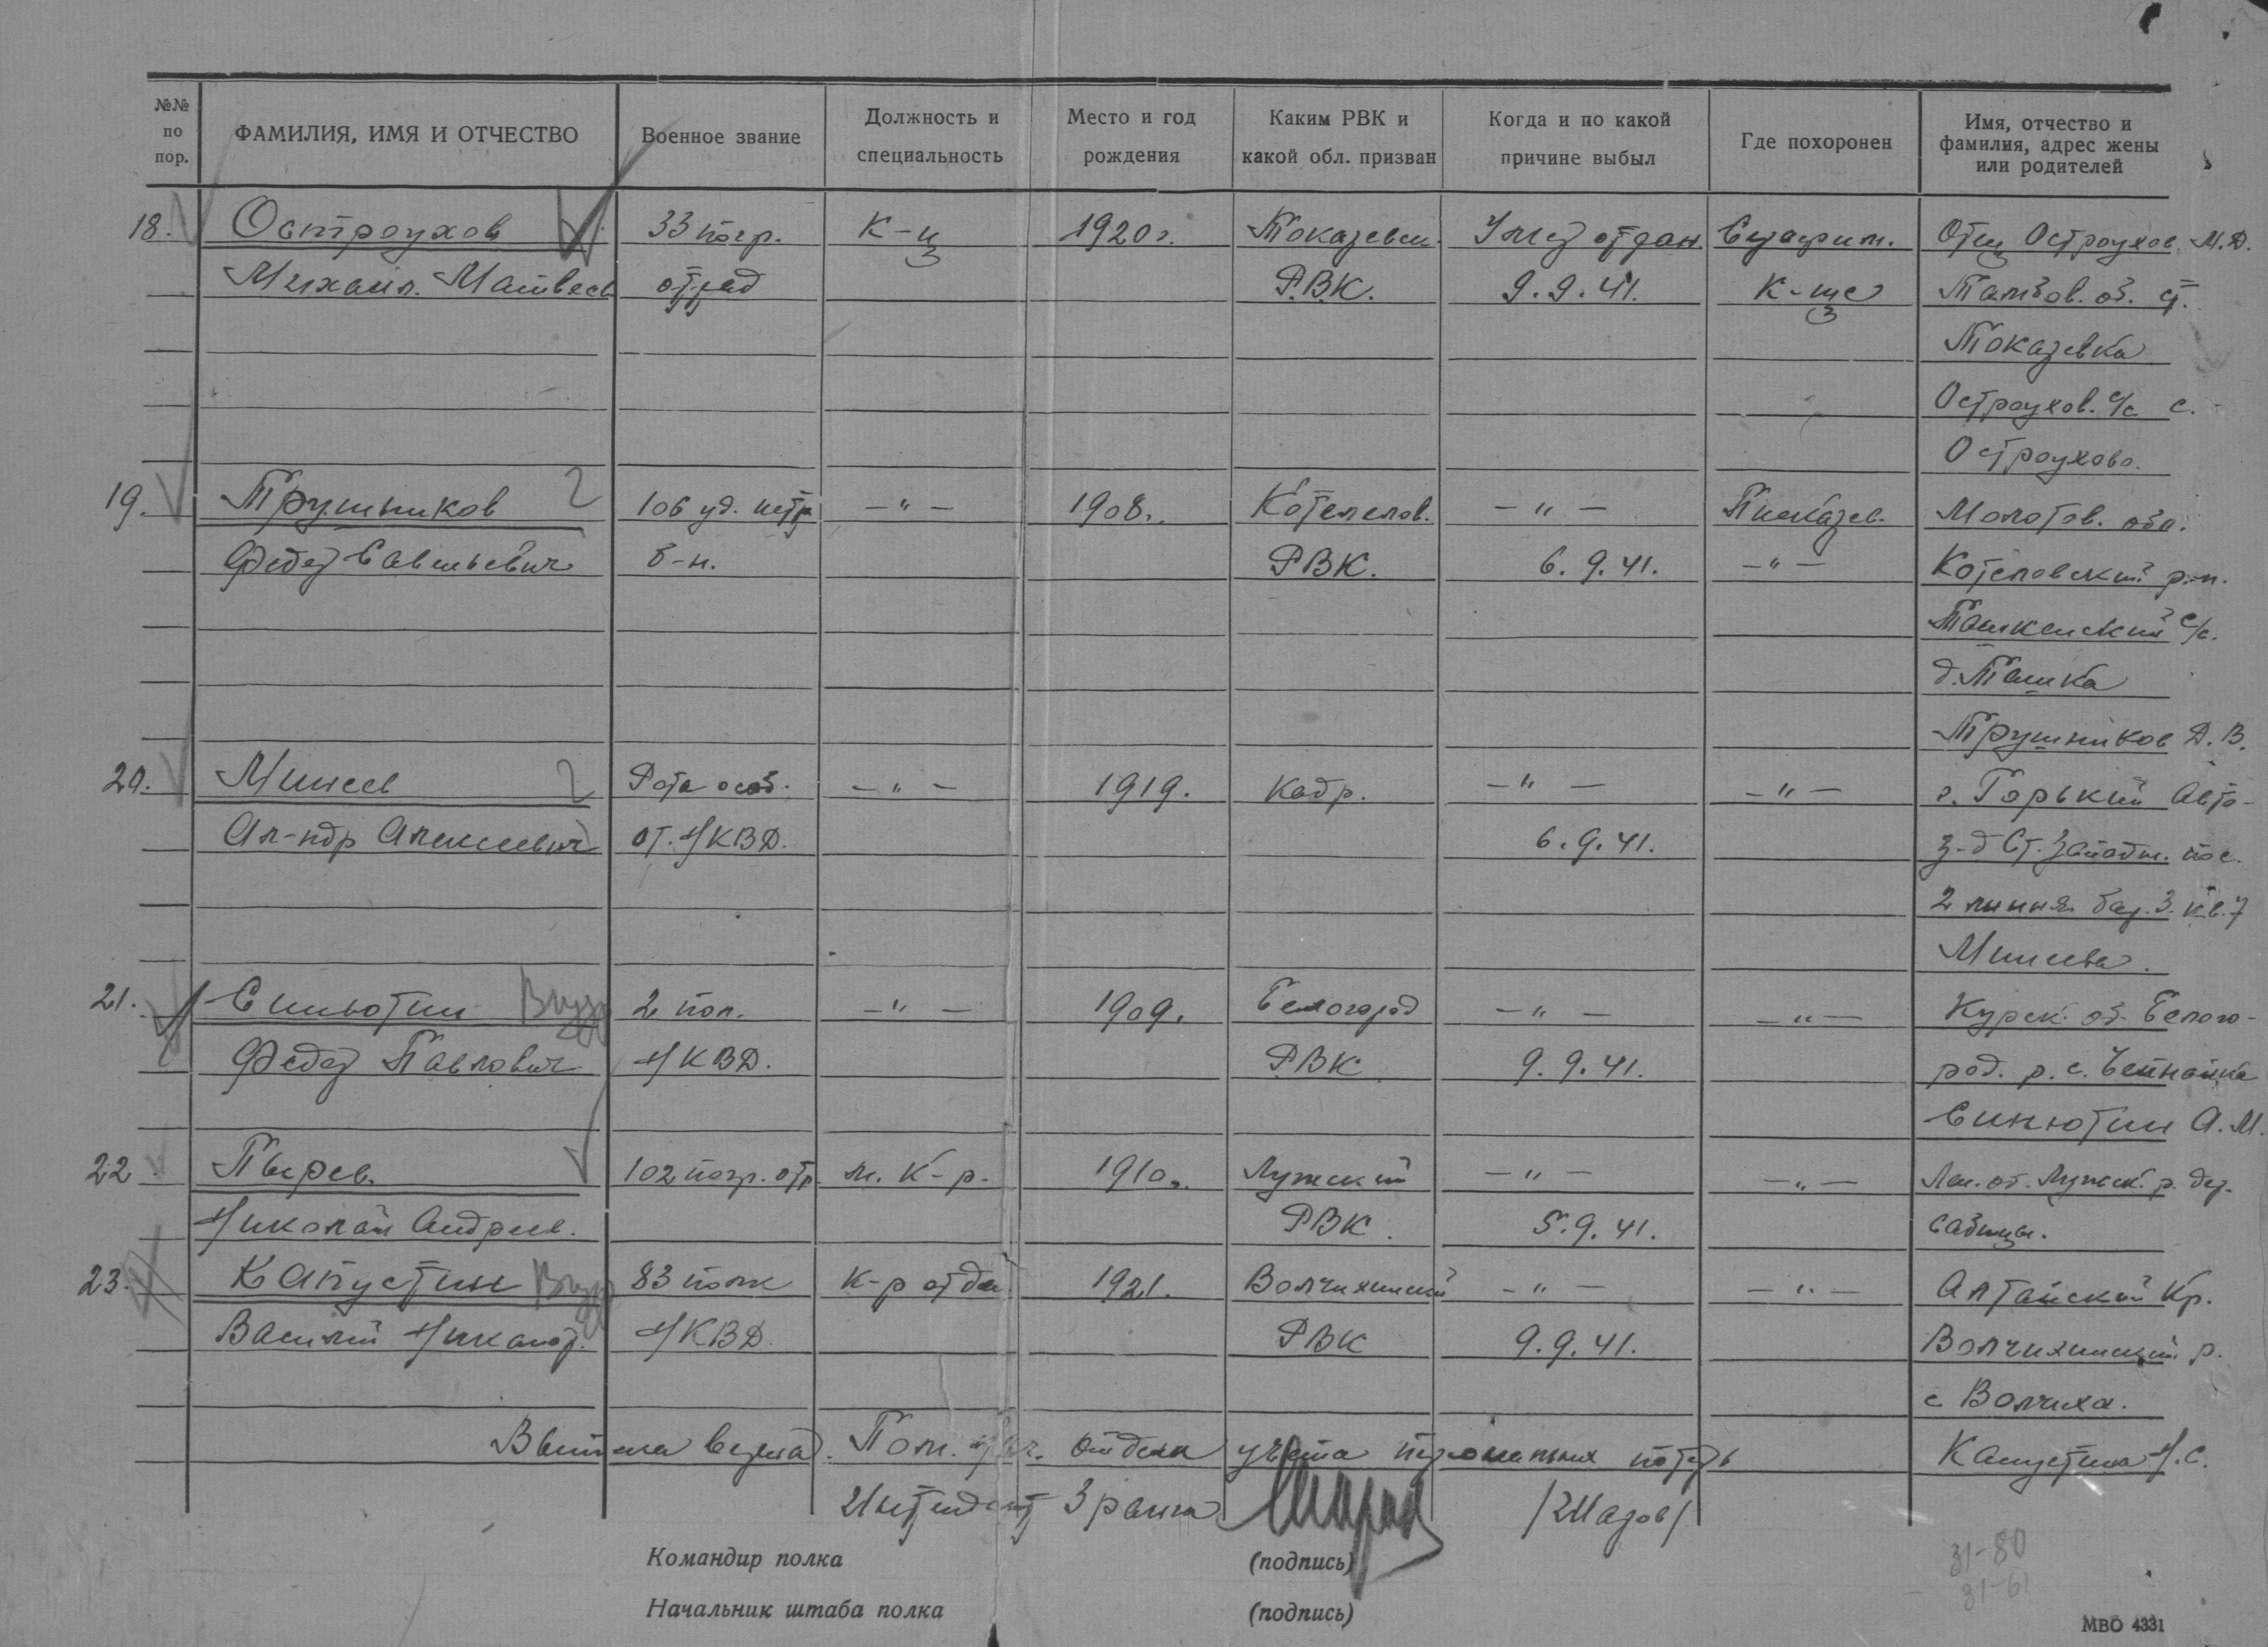 №№ по пор.
ФАМИЛИЯ, ИМЯ И ОТЧЕСТВО
Военное звание
Должность и специальность
Место и год рождения
Каким РВК и какой обл. призван
Когда и по какой причине выбыл
Где похоронен
Имя, отчество и фамилия, адрес жены или родителей
18. Остроухов 33 погр. К-ц 1920 г. Токаревск. Умер от ран. Серафим. Отец Остроухов М.Д.
Михаил Матвеев отряд Р.В.К. 9.9.41. К-ще Тамбов. об. ст.
Токаревка
Остроухов. с/с с.
Остроухово.
19. Трушников 106 уд. истр. -"- 1908 г. Котеллов. -"- Пискарев. Молотов. обл.
Федер Савельевич б-н. РВК. 6.9.41. -"- Котеловский р-н.
Ташкенский с/с.
д. Ташка
Трушников Д.В.
20. Минеев Рота особ. -"- 1919. Кадр. -"- -"- г. Горький Авто-
Ал-ндр Алексеевич от. НКВД. 6.9.41. з-д Ст. Западн. пос.
2 линия бар. 3. кв. 7
Минеева.
21. Синютин 2 пол. -"- 1909. Белогород -"- -"- Курск. об. Белого-
Федер Павлович НКВД. РВК 9.9.41. род. р. с.
Синютин А.М.
22 Пырев. 102 погр. отр. м. К-р. 1910 г. Лужский -"- -"- Лен. об. Лужск. р. дер.
Николай Андреев. РВК. 5.9.41. Сабицы.
23. Капустин 83 полк К-р отде 1921. Волчихинский -"- -"- Алтайский Кр.
Василий Никанор. НКВД. РВК 9.9.41. Волчихинский р.
с Волчиха.
Выписка верна. Пом. Нач. отдела учета персональных потерь Капустина Н.С.
Интендант 3 ранга /Шаров/
Командир полка (подпись)
Начальник штаба полка (подпись)
31-80
31-61
МВО 4331